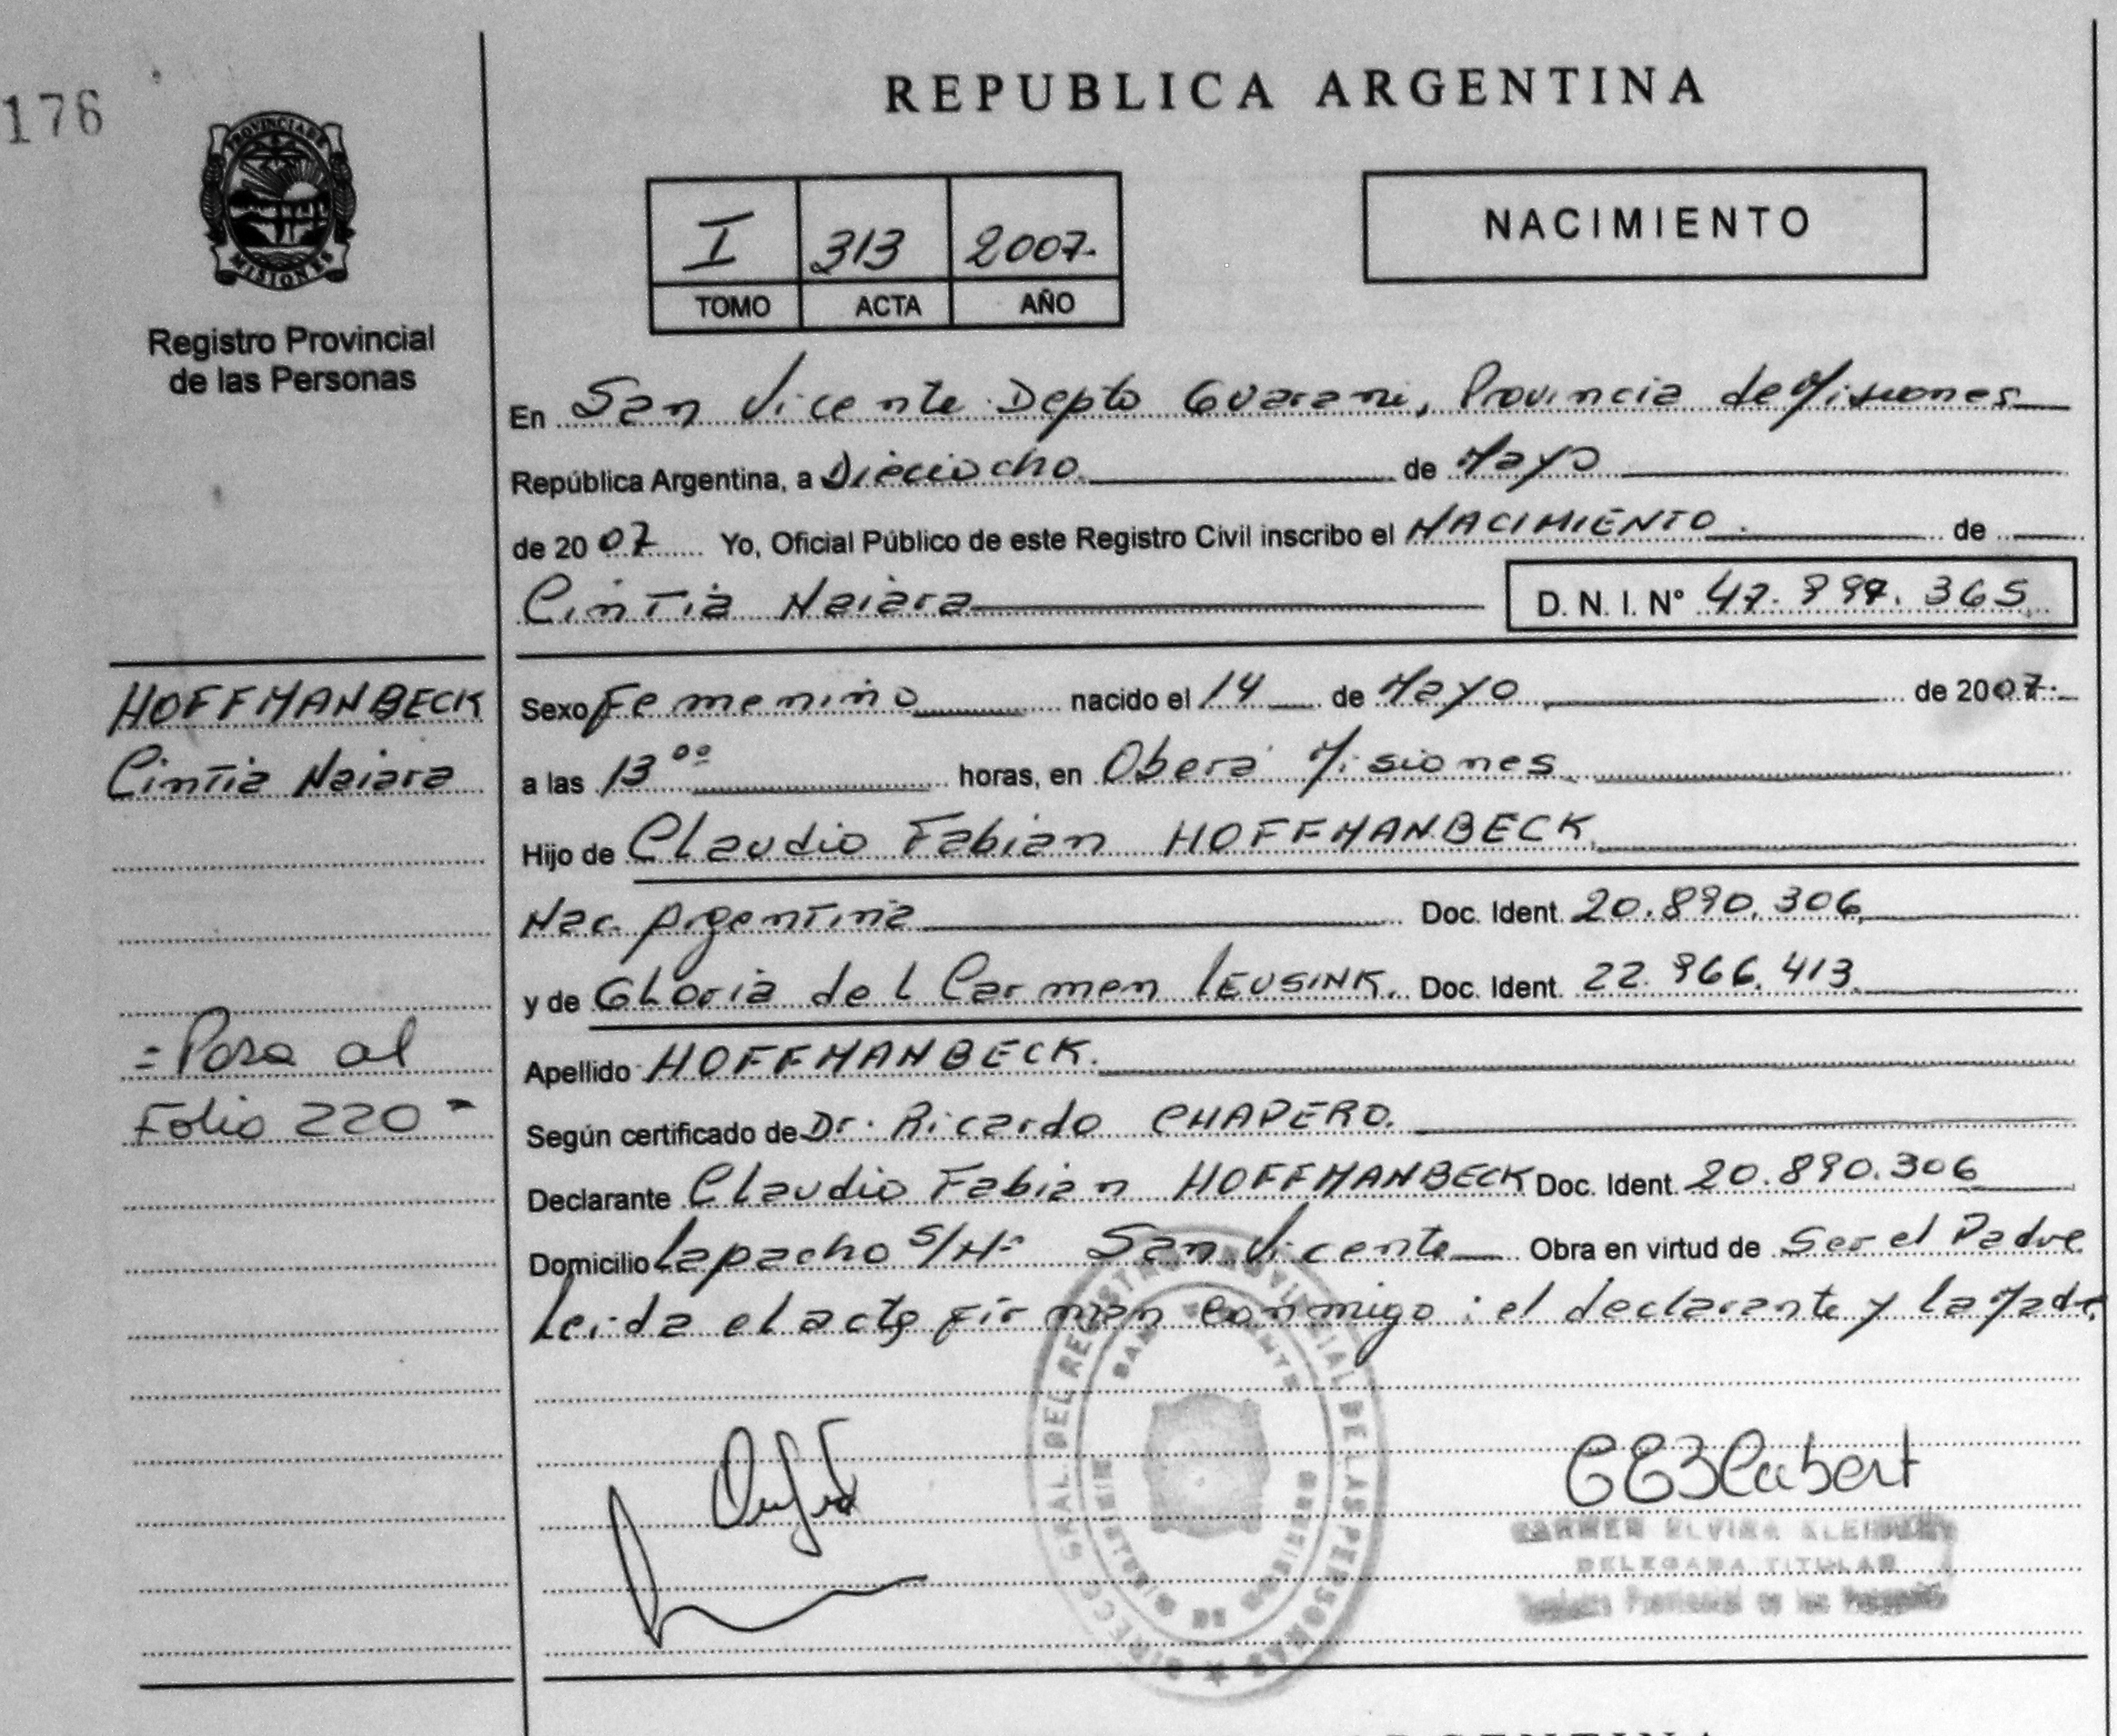 176
REPUBLICA ARGENTINA
PROVINCIA DE
MISIONES
Registro Provincial
de las Personas
I 313 2007.
TOMO ACTA AÑO
NACIMIENTO
En San Vicente Depto Guarani, Provincia de Misiones
República Argentina, a Dieciocho de Mayo
de 2007 Yo, Oficial Público de este Registro Civil inscribo el NACIMIENTO. de
Cintia Naiara D. N. I. N° 47. 365
HOFFMANBECK
Cintia Naiara
Sexo Femenino nacido el 14 de Mayo de 2007.
a las 13 ºº horas, en Obera Misiones
Hijo de Claudio Fabian HOFFMANBECK
Nac. Argentina Doc. Ident. 20.890.306
y de Gloria del Carmen LEUSINK. Doc. Ident. 22.966.413
=Pasa al
Folio 220=
Apellido HOFFMANBECK.
Según certificado de Dr. Ricardo CHAPERO.
Declarante Claudio Fabian HOFFMANBECK Doc. Ident. 20.890.306
Domicilio Lapacho S/Nº San Vicente Obra en virtud de Ser el Padre
Leida el acta firman conmigo: el declarante y la Madre
DIRECC. GRAL. DEL REGISTRO PROVINCIAL DE LAS PERSONAS
SAN VICENTE
MINISTERIO DE GOBIERNO
CARMEN ELVIRA
DELEGADA TITULAR
Registro Provincial de las Personas
ARGENTINA